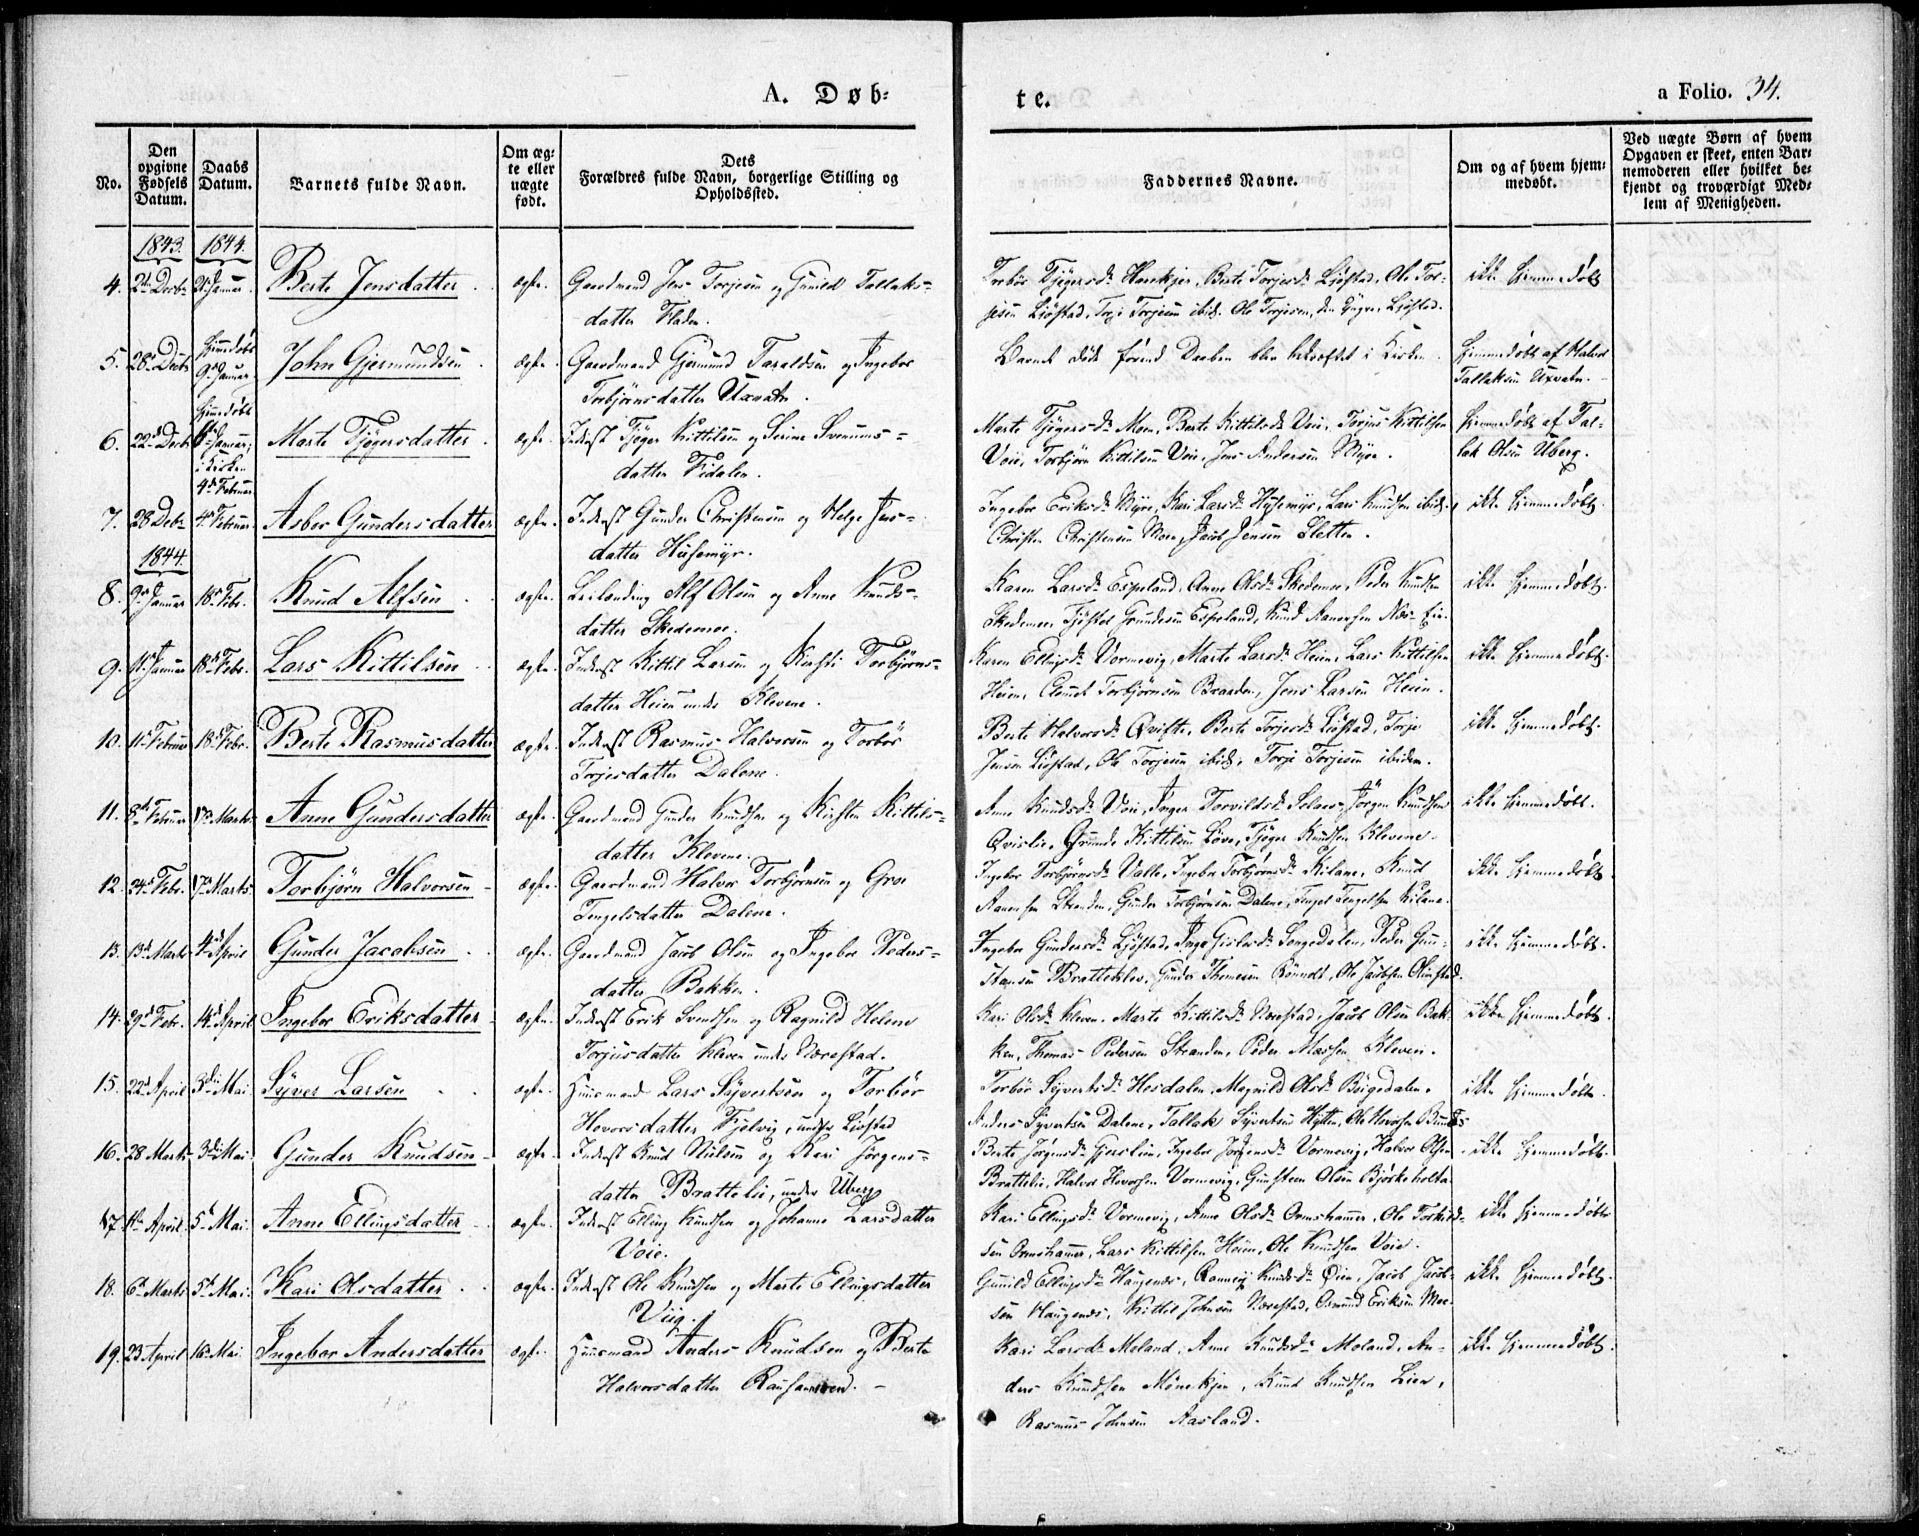 A. Døb-
te.
a Folio. 34.
No.
Den opgivne Fødsels Datum.
Daabs Datum.
Barnets fulde Navn.
Om ægte eller uægte født.
Dets Forældres fulde Navn, borgerlige Stilling og Opholdssted.
Faddernes Navne.
Om og af hvem hjemmedøbt.
Ved uægte Børn af hvem Opgaven er skeet, enten Barnemoderen eller hvilket bekjendt og troværdigt Medlem af Menigheden.
1843. 1844.
4. Decbr Januar Berte Jensdatter ægte. Gaardmand Jens Torjesen og Gunild Tallaks-
datter Fladen.
Torbör Tjøgersdr Berte Torjesdr Ljøstad, Ole Tor-
jesen Ljøstad, Torje Torjesen ibid. Ole Torjesen, den yngre, Ljøstad.
ikke hjemmedøbt
5. 28de Decbr Hjemmedøbt 9de Januar John Gjermundsen ægte. Gaardmand Gjermund Taraldsen og Ingebor
Torbjørnsdatter Uxvatn.
Barnet døde førend Daaben blev bekræftet i Kirken.
hjemmedøbt af Halvor
Tallaksen Uxvatn.
6. 22de Decbr Hjemmedøbt Januar, i Kirken 4de Februar Marte Tjøgersdatter ægte. Inderst Tjøger Kittilsen og Serine Svenums-
datter Fidalen.
Marte Tjøgersdr Moen, Berte Kittilsdr Voie, Torjus Kittilsen
Voie, Torbjørn Kittilsen Voie, Jens Andersen Myre.
hjemmedøbt af Tal-
lak Olsen Uberg.
7. 28 Decbr 4de Februar Asbor Gundersdatter ægte. Inderst Gunder Christensen og Helge Jens-
datter Husemyr.
Ingebor Eriksdr Myre, Kari Larsdr Husemyr, Lars Knudsen ibid.
Christen Christensen Moen, Jacob Jensen Sletten.
ikke hjemmedøbt.
1844.
8. 9de Januar 18de Febr. Knud Alfsen ægte. Leilending Alf Olsen og Anne Knuds-
datter Skedemoe.
Karen Larsdr Espeland, Anne Olsdr Skedemoe, Peder Knudsen
Skedemoe, Tjøstel Gundersen Espeland, Knud Aanonsen
ikke hjemmedøbt.
9. 11te Januar 18de Febr. Lars Kittilsen ægte. Inderst Kittil Larsen og Kirsti Torbjørns-
datter Heien under Klevene.
Karen Ellingsdr Vormevig, Marte Larsdr Heien, Lars Kittilsen
Heien, Torbjørnsen Braaden, Jens Larsen Heien.
ikke hjemmedøbt.
10. 11te Februar 18de Febr. Berte Rasmusdatter ægte. Inderst Rasmus Halvorsen og Torbör
Torjesdatter Dalene.
Berte Halvorsdr Qvifte, Berte Torjesdr Ljøstad, Torje
Jensen Ljøstad, Ole Torjesen ibid., Torje Torjesen ibidem.
ikke hjemmedøbt.
11. 8de Februar 17de Marts Anne Gundersdatter ægte. Gaardmand Gunder Knudsen og Kirsten Kittils-
datter Klevene.
Anne Knudsdr Voie, Inger Torvildsdr Jörgen Knudsen
Qvislie, Kittilsen Løve, Tjøger Knudsen Klevene.
ikke hjemmedøbt.
12. 24de Febr. 17de Marts Torbjørn Halvorsen ægte. Gaardmand Halvor Torbjørnsen og Groe
Tengelsdatter Dalene.
Ingebor Torbjörnsdr Valle, Ingebor Torbjörnsdr Kilane, Knud
Aanonsen Stranden, Gunder Torbjørnsen Dalene, Tengel Tengelsen Kilane.
ikke hjemmedøbt.
13. 13de Marts April Gunder Jacobsen ægte. Gaardmand Jacob Olsen og Ingebor Peders-
datter Bakken.
Ingebor Gundersdr Ljøstad, Inge Songedalen, Peder Gun-
Bratteklev, Gunder Thomesen Ole Jacobsen
ikke hjemmedøbt.
14. 29de Febr. 14de April Ingebor Eriksdatter ægte. Inderst Erik Svendsen og Ragnild Helene
Torjusdatter Kleven under Nærestad.
Kari Olsdr Kleven, Marte Kittilsdr Nærestad, Jacob Olsen Bak-
ken, Thomas Pedersen Stranden, Peder Kleven.
ikke hjemmedøbt.
15. 22de April 3die Mai Syver Larsen ægte. Huusmand Lars Syvertsen og Torbör
Hovorsdatter Fjelvig, under Ljøstad
Torbör Syvertsdr Hosdalen, Magnild Olsdr
Anders Syvertsen Dalene, Tallak Syvertsen Hytten, Ole
ikke hjemmedøbt.
16. 28 Marts 3die Mai Gunder Knudsen ægte. Inderst Knud Nielsen og Kari Jörgens-
datter Brattelie, under Uberg
Berte Jörgensdr Ingebor Vormevig, Halvor Olsen
Brattelie, Halvor Hovorsen Vormevig, Gunsteen Olsen Bjørkeholta
ikke hjemmedøbt.
17. April. 5te Mai Anne Ellingsdatter ægte. Inderst Elling Knudsen og Johanne Larsdatter
Voie.
Kari Ellingsdr Vormevig, Anne Olsdr Ormshammer, Ole Torkild-
sen Ormshammer, Lars Kittilsen Heien, Ole Knudsen Voie.
ikke hjemmedøbt
18. 6te Marts 5te Mai. Kari Olsdatter ægte. Inderst Ole Knudsen og Marte Ellingsdatter
Viig.
Gunild Ellingsdr Haugenes, Knudsdr Øien, Jacob Jacob-
sen Haugenes, Kittil Johnsen Nærestad, Osmund Eriksen Moe.
ikke hjemmedøbt.
19. 23 April 16de Mai Ingebor Andersdatter ægte. Huusmand Anders Knudsen og Berte
Halvorsdatter
Kari Larsdr Moland, Anne Knudsdr Moland, An-
ders Knudsen Knud Knudsen Lien,
Rasmus Johnsen Aasland.
ikke hjemmedøbt.